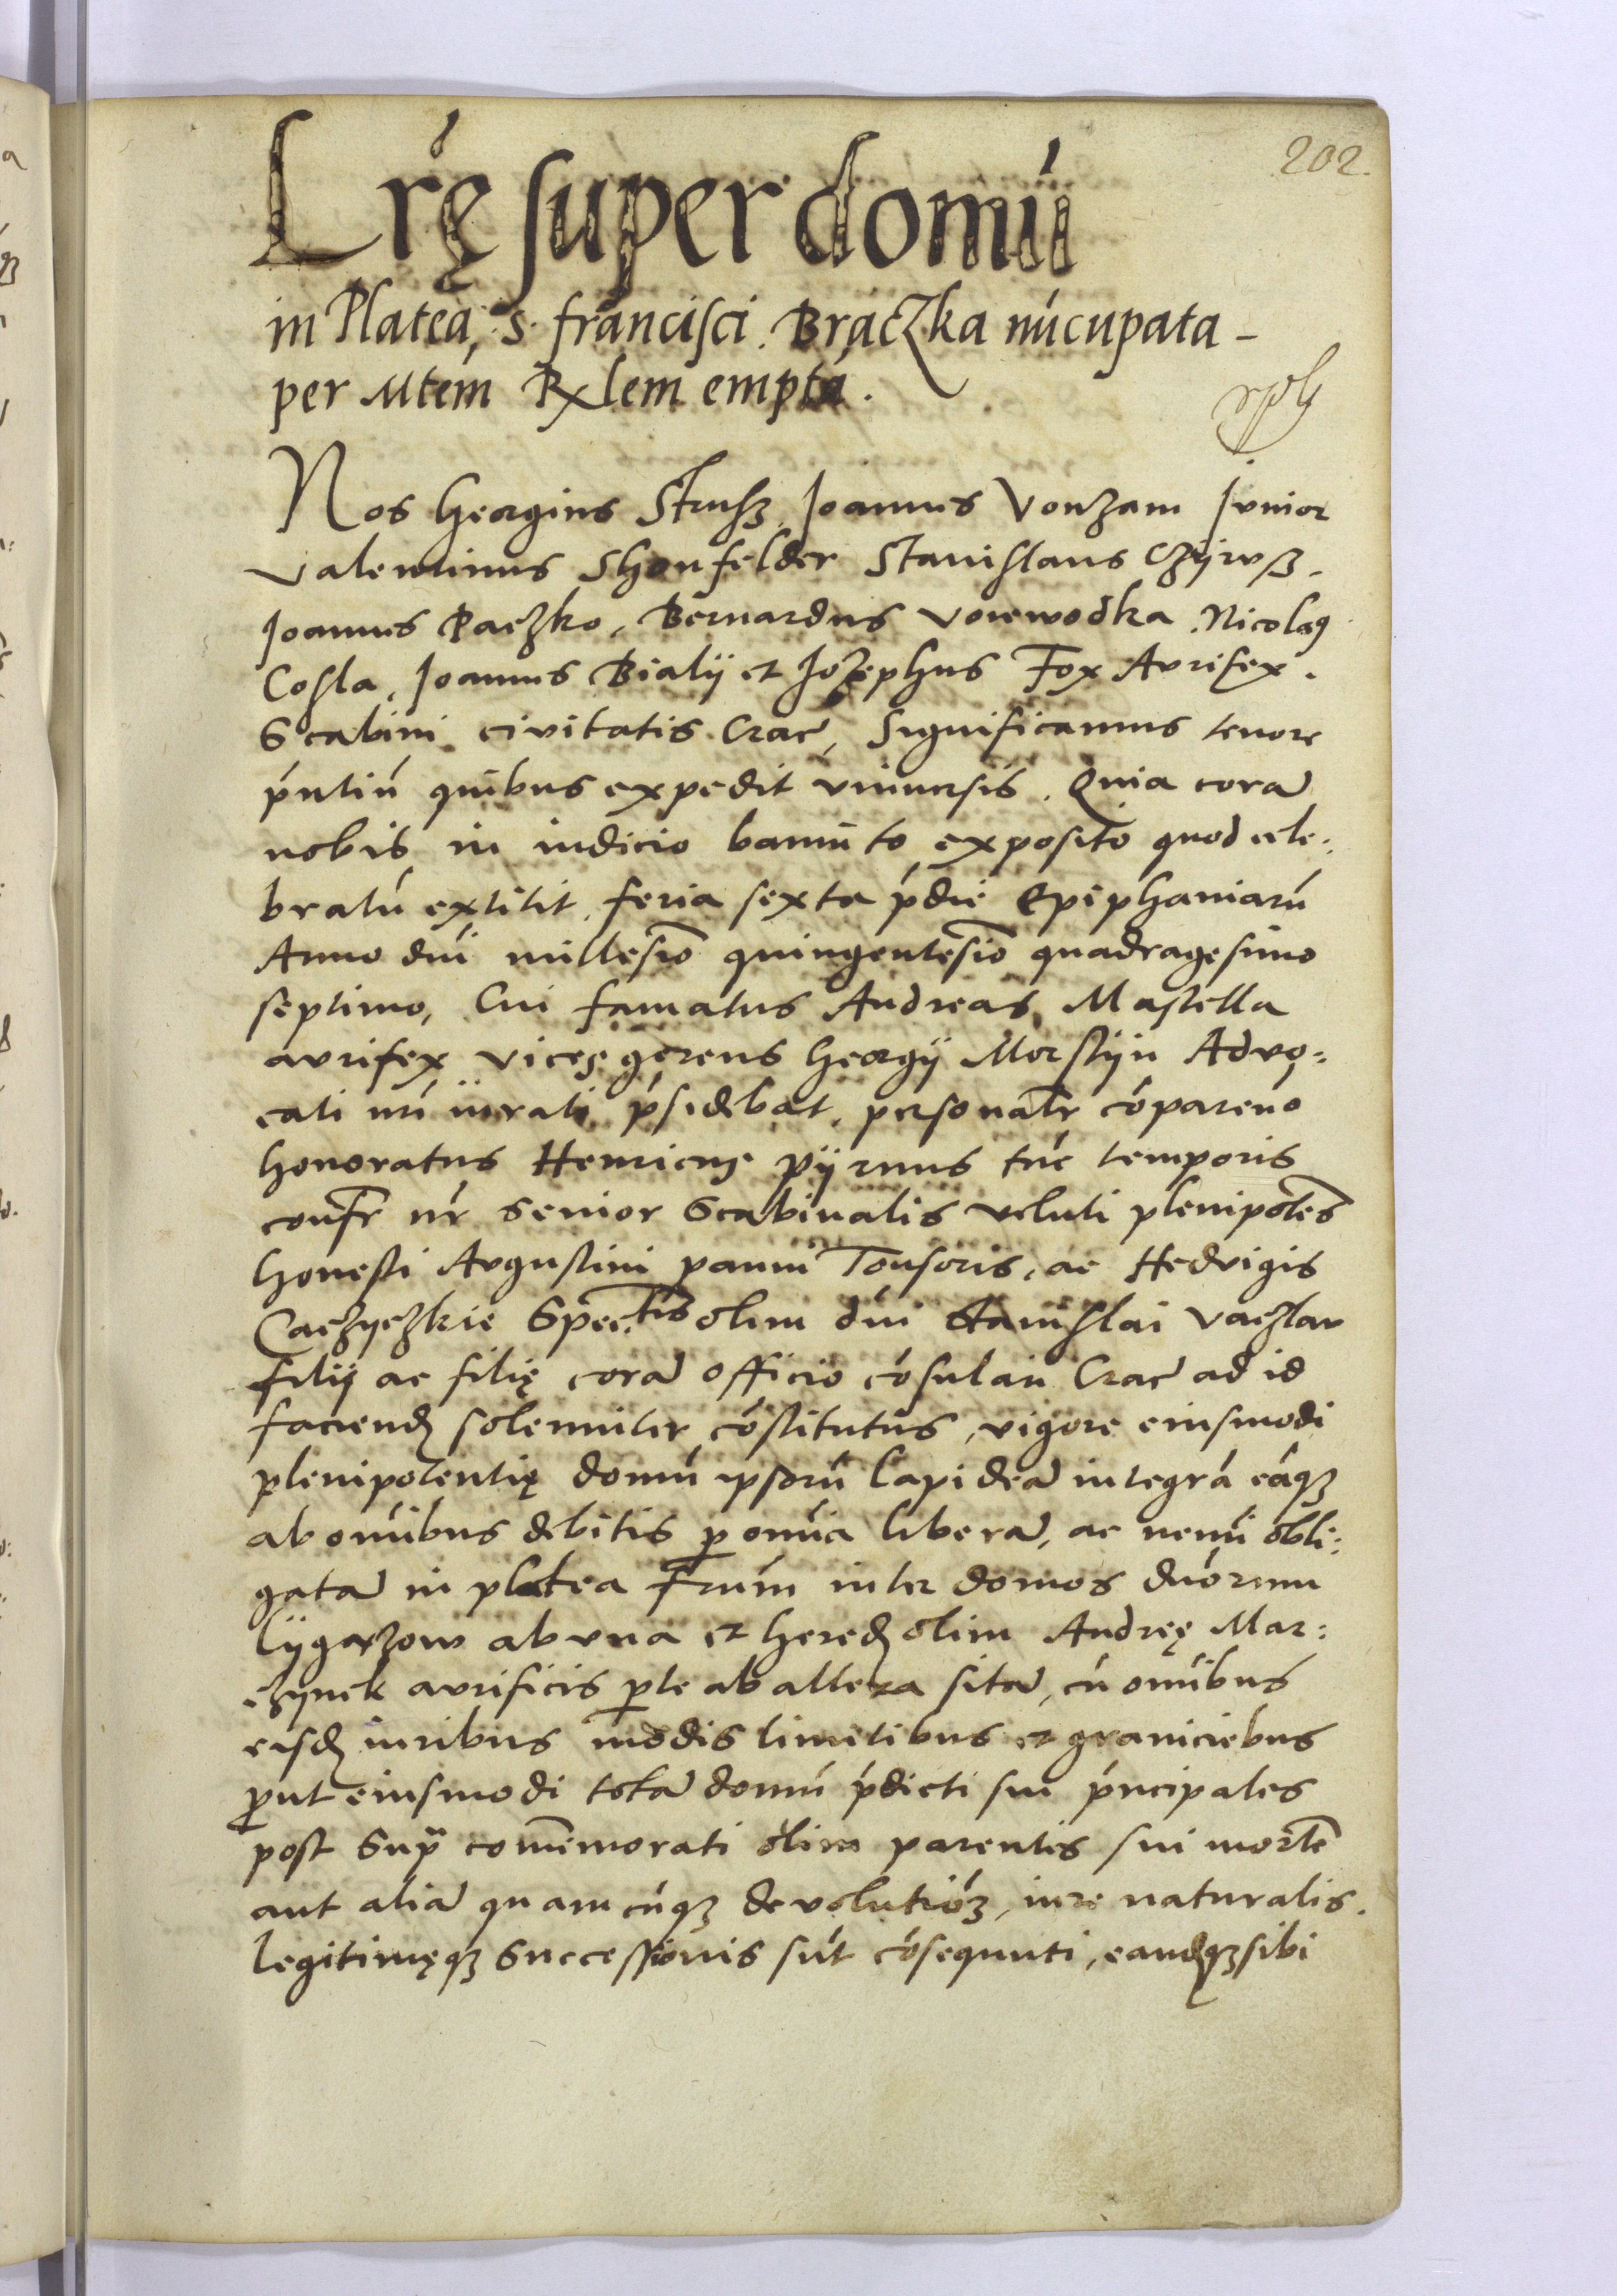 202.
Lrę super domū
in Platea, S. francisci. Brączka nūcupata -
per Mtem Rxlem emptā.
Nos Georgius Strusz, Joannes Vonzam Junior
Valentinus Shonfelder Stanislaus Czÿrusz.
Joannes Paczko, Bernardus Voiewodka, Nicolaꝯ
Cosla, Joannes Bialÿ et Jozephus Fox Aurifex.
Scabini civitatis Crac̄, Significamus tenore
pn̄tiū quibus expedit vniuersis. Quia corā
nobis in iudicio bannito exposito quod cele:
bratū extitit, feria sexta p̄die Epiphaniarū
Anno dn̄i millesīo quingentesīo quadragesimo
septimo, Cui famatus Andreas Mastella
aurifex vicęgerens Georgÿ Morstÿn Advo:
cati nr̄i iurati p̄sidebat, personalr̄ cōparens
honoratus Henricus pÿrnus tūc temporis
confr̄ nr̄ senior Scabinalis veluti plenipotēs
honesti Augustini panni Tonsoris, ac Hedvigis
Caczyczkie Spectis olim dn̄i Stanislai Vaczlaw
filij ac filię corā officio cōsulari Crac̄ ad id
faciendꝫ solenniter cōstitutus, vigore eiusmodi
plenipotentię domū ipsorū Lapideā integrā eāqꝫ
ab omībus debitis ꝑ omīa liberā, ac nemī obli:
gatā in platea Frūm inter domos duōrum
Lÿgęzow ab vna et heredꝫ olim Andreę Mar:
czynek aurificis ꝑte ab altera sitā, cū omībus
eisdꝫ iuribus modis limitibus et graniciebus
ꝓut eiusmodi totā domū p̄dicti sui prīncipales
post Supᵃ com̄emorati olim parentis sui mortē
aut aliā quamcūqꝫ devolutiōꝫ, iure naturalis.
legitimęqꝫ Successionis sūt cōsequuti, eandꝫqꝫ sibi